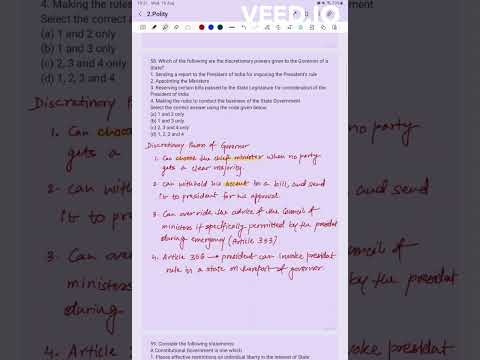 VEED.IO
2.Polity
58. Which of the following are the discretionary powers given to the Governor of a
State?
1. Sending a report to the President of India for imposing the President's rule
2. Appointing the Ministers
3. Reserving certain bills passed by the State Legislature for consideration of the
President of India
4. Making the rules to conduct the business of the State Government
Select the correct answer using the code given below:
(a) 1 and 2 only
(b) 1 and 3 only
(c) 2, 3 and 4 only
(d) 1, 2, 3 and 4
Discretionary Powers of Governor
1. Can choose the chief minister when no party
gets a clear majority
2. can withhold his assent to a bill, and send
it to president for his approval
3. Can override the advice of the Council of
ministers if specifically permitted by the president
during emergency (Article 353)
4. Article 356 → president can invoke president
rule in a state on of governor
59. Consider the following statements:
A Constitutional Government is one which
1. Places effective restrictions on individual liberty in the interest of State
4. Making the rules
Select the correct
(a) 1 and 2 only
(b) 1 and 3 only
(c) 2, 3 and 4 only
(d) 1, 2, 3 and 4
Discretionary
1. Can
gets
2. can
it
3. Can
ministers
during
4. Article
no party
and send
of
the president
president